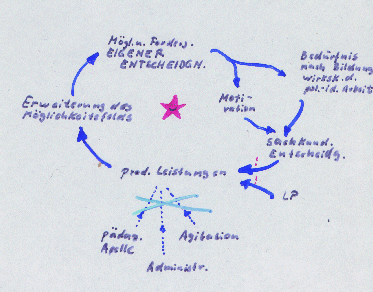 Mögl. u. Forderg.
EIGENER
ENTSCHEIDGN.
Bedürfnis
nach Bildung
wirksk. d.
pol.-id. Arbeit
Erweiterung des
Möglichkeitsfelds
Moti-
vation
Sachkund.
Entscheidg.
prod. Leistungen
LP
pädag.
Apelle
Agitation
Administr.